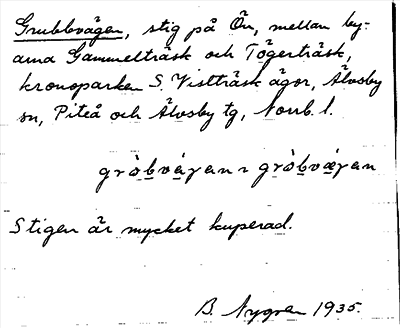 Grubbvägen, stig på Ön, mellan by-
arna Gammelträsk och Tögerträsk,
kronoparken S. Vistträsk ägor, Älvsby
sn, Piteå och Älvsby tg, Norrb. l.
gròbvá̱γan ~ gròbvǽγan
Stigen är mycket kuperad.
B. Nygren 1935.